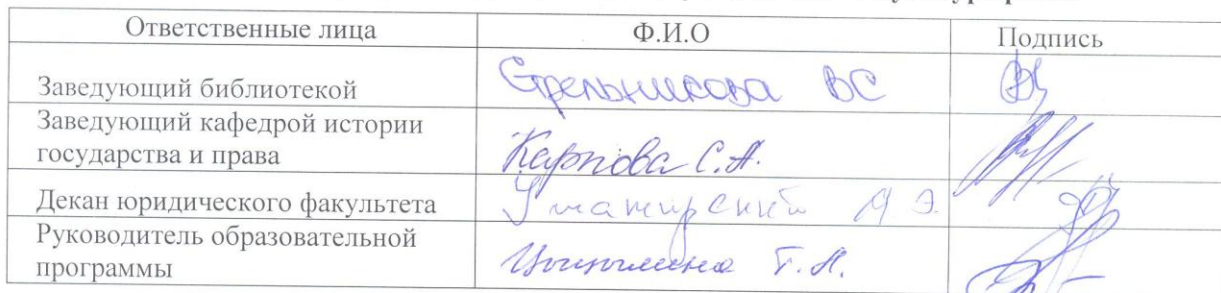 Ответственные лица Ф.И.О Подпись
Заведующий библиотекой Стрельникова ВС
Заведующий кафедрой истории
государства и права Карпова С.А.
Декан юридического факультета
Руководитель образовательной
программы Т.А.